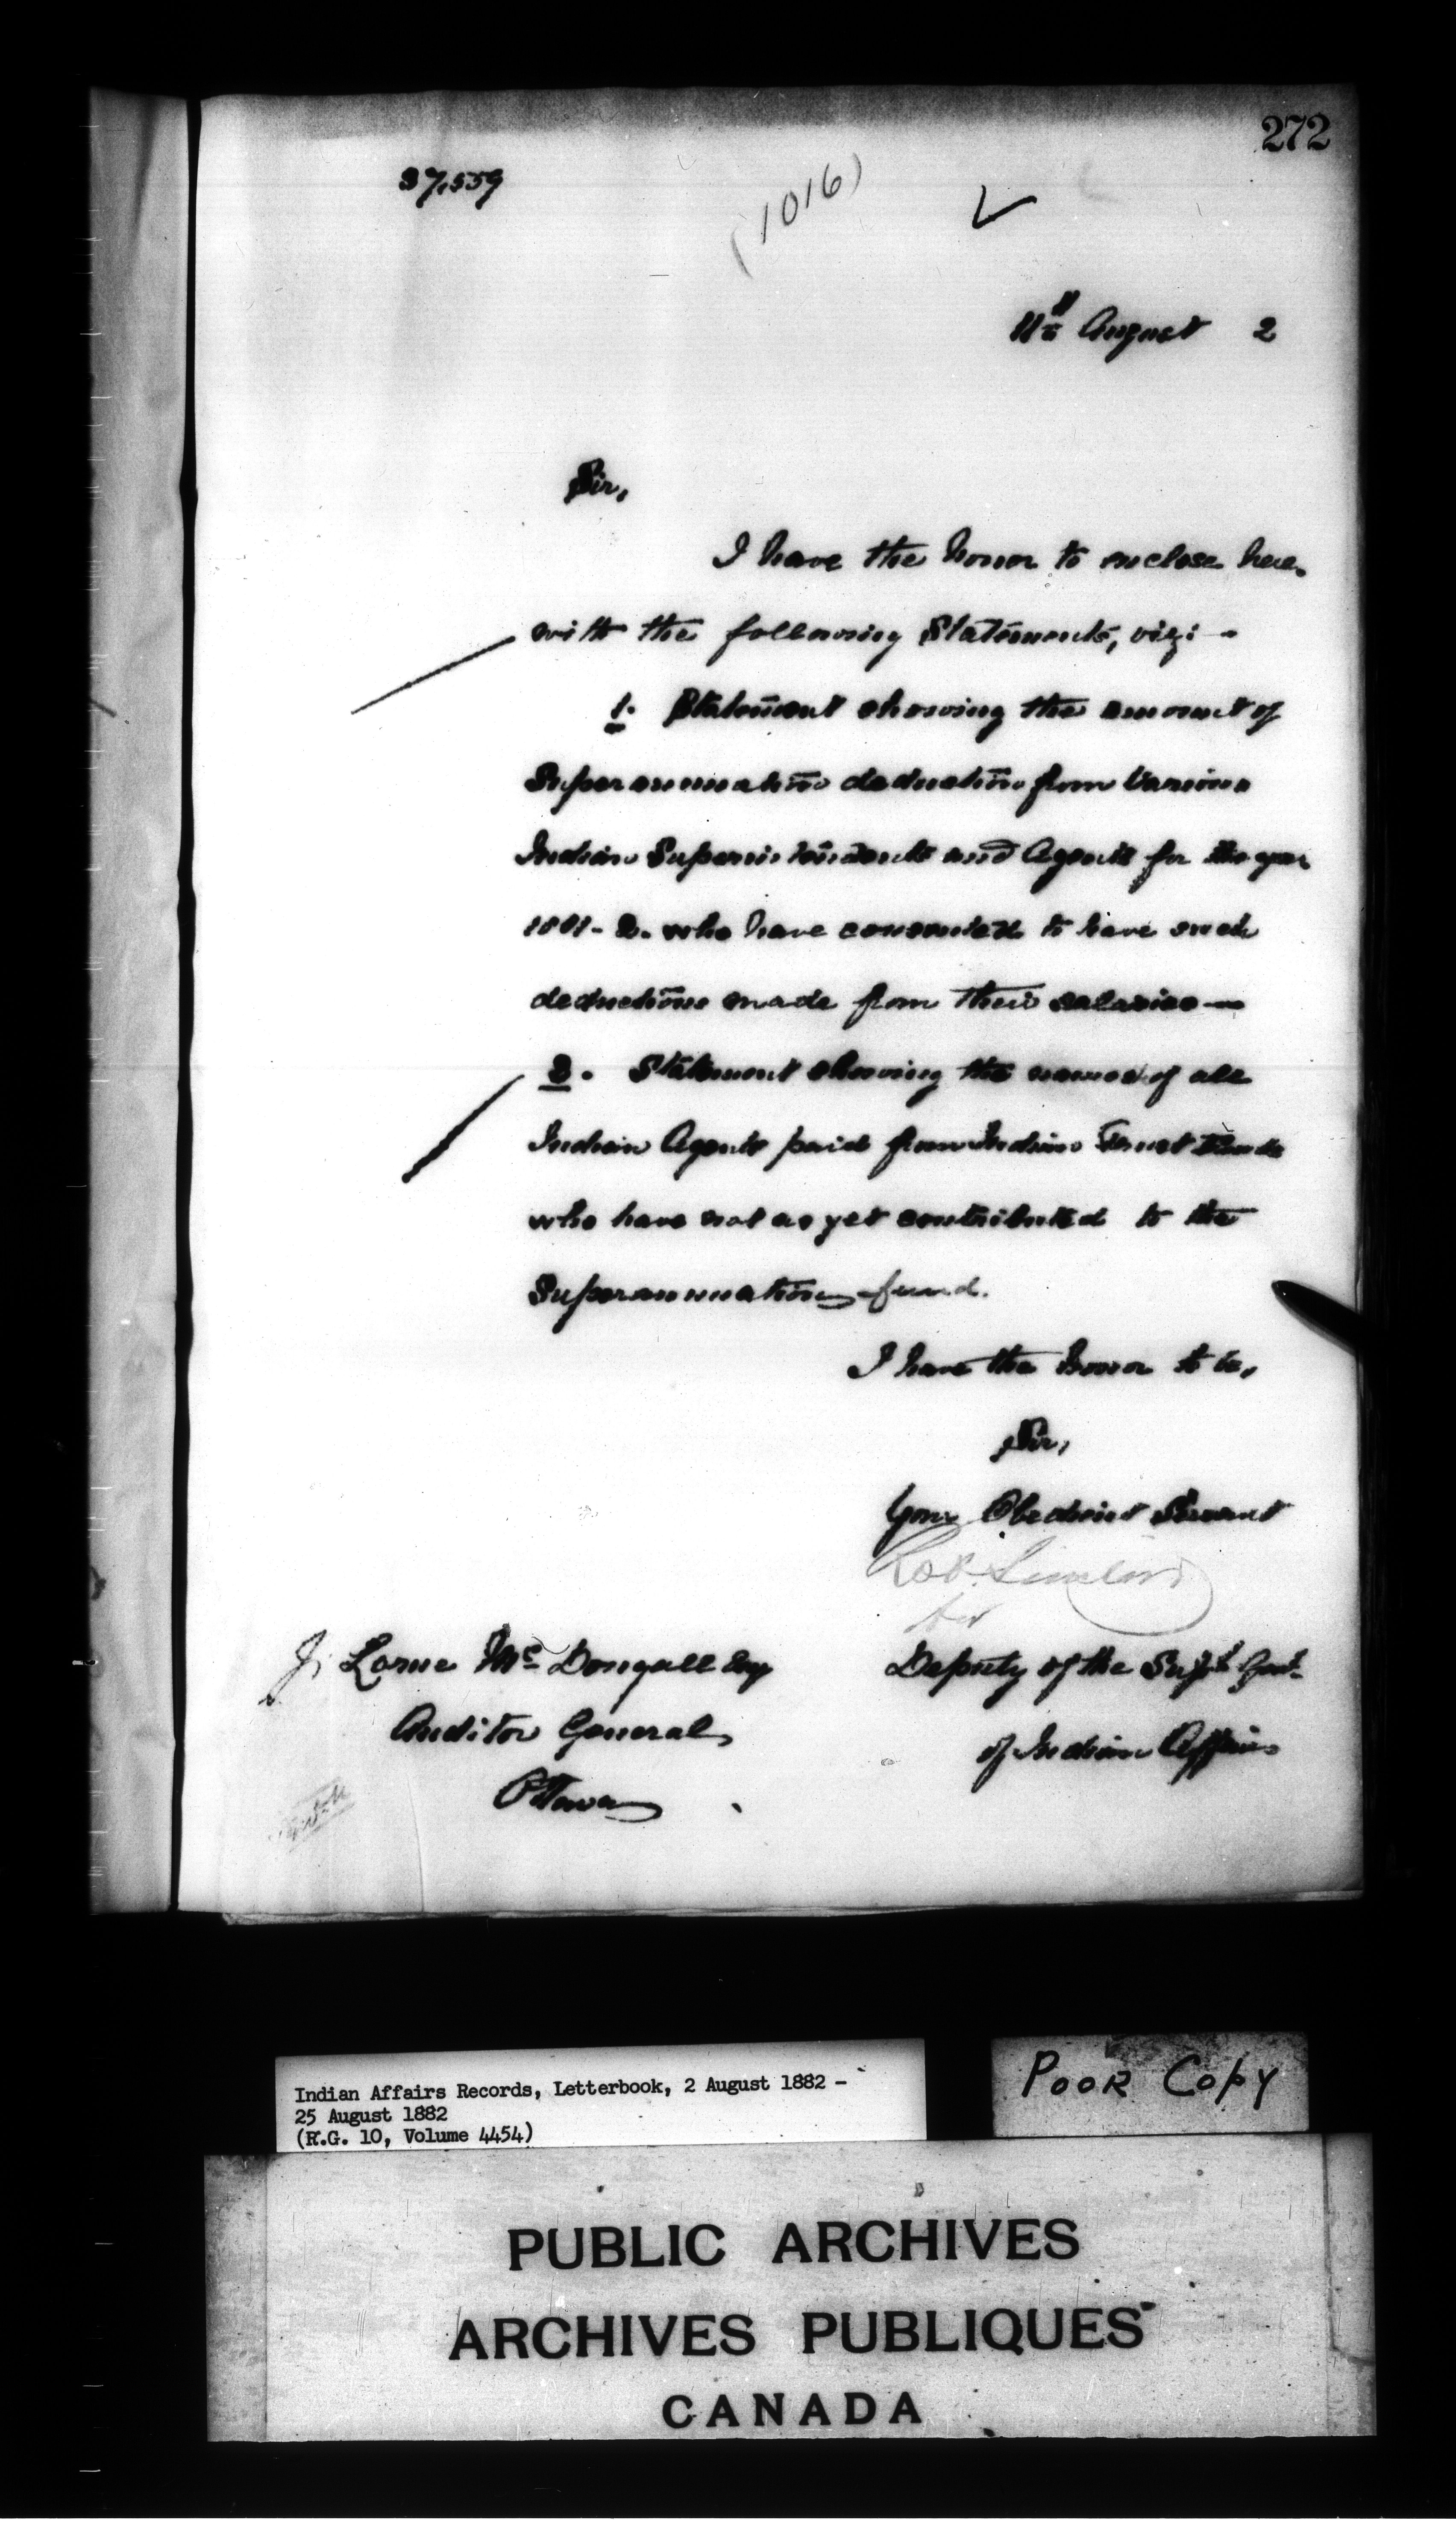 272
37,559
(1016)
11th August 2
Sir,
I have the honor to enclose here-
with the following Statements, viz: -
1. Statement showing the amount of
Superannuation deduction from various
Indian Superintendents and Agents for the year
1881-2. who have consented to have such
deductions made from their salaries —
2. Statement showing the names of all
Indian Agents paid from Indian Trust Funds
who have not as yet contributed to the
Superannuation fund.
I have the honor to be,
Sir,
Your Obedient Servant
Rob. Sinclair
for
J. Lorne McDougall Esq
Deputy of the Supt Genl.
Auditor General,
of Indian Affairs
Ottawa
Indian Affairs Records, Letterbook, 2 August 1882 -
25 August 1882
(R.G. 10, Volume 4454)
POOR COPY
PUBLIC ARCHIVES
ARCHIVES PUBLIQUES
CANADA